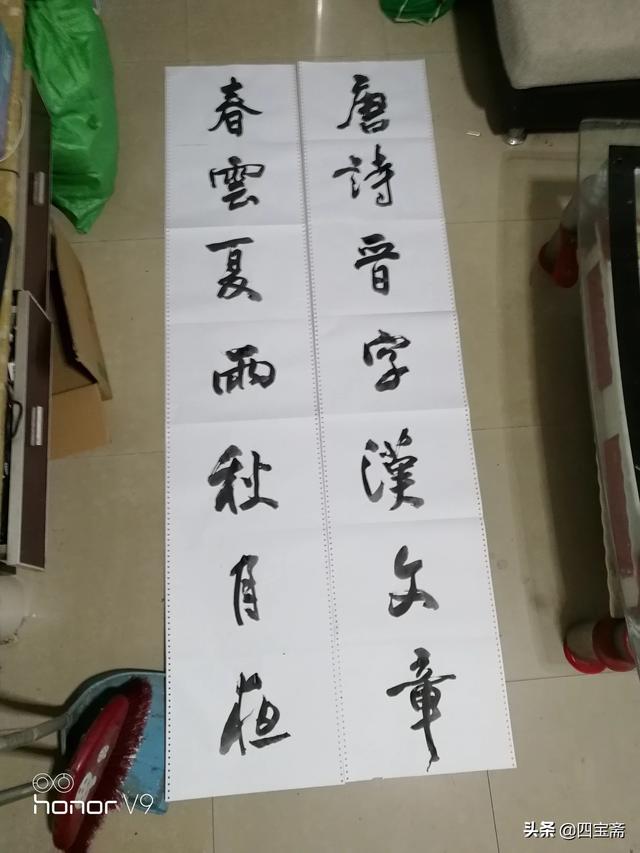 唐詩晋字漢文章
春雲夏雨秋月
honor V9
头条 @四宝斋